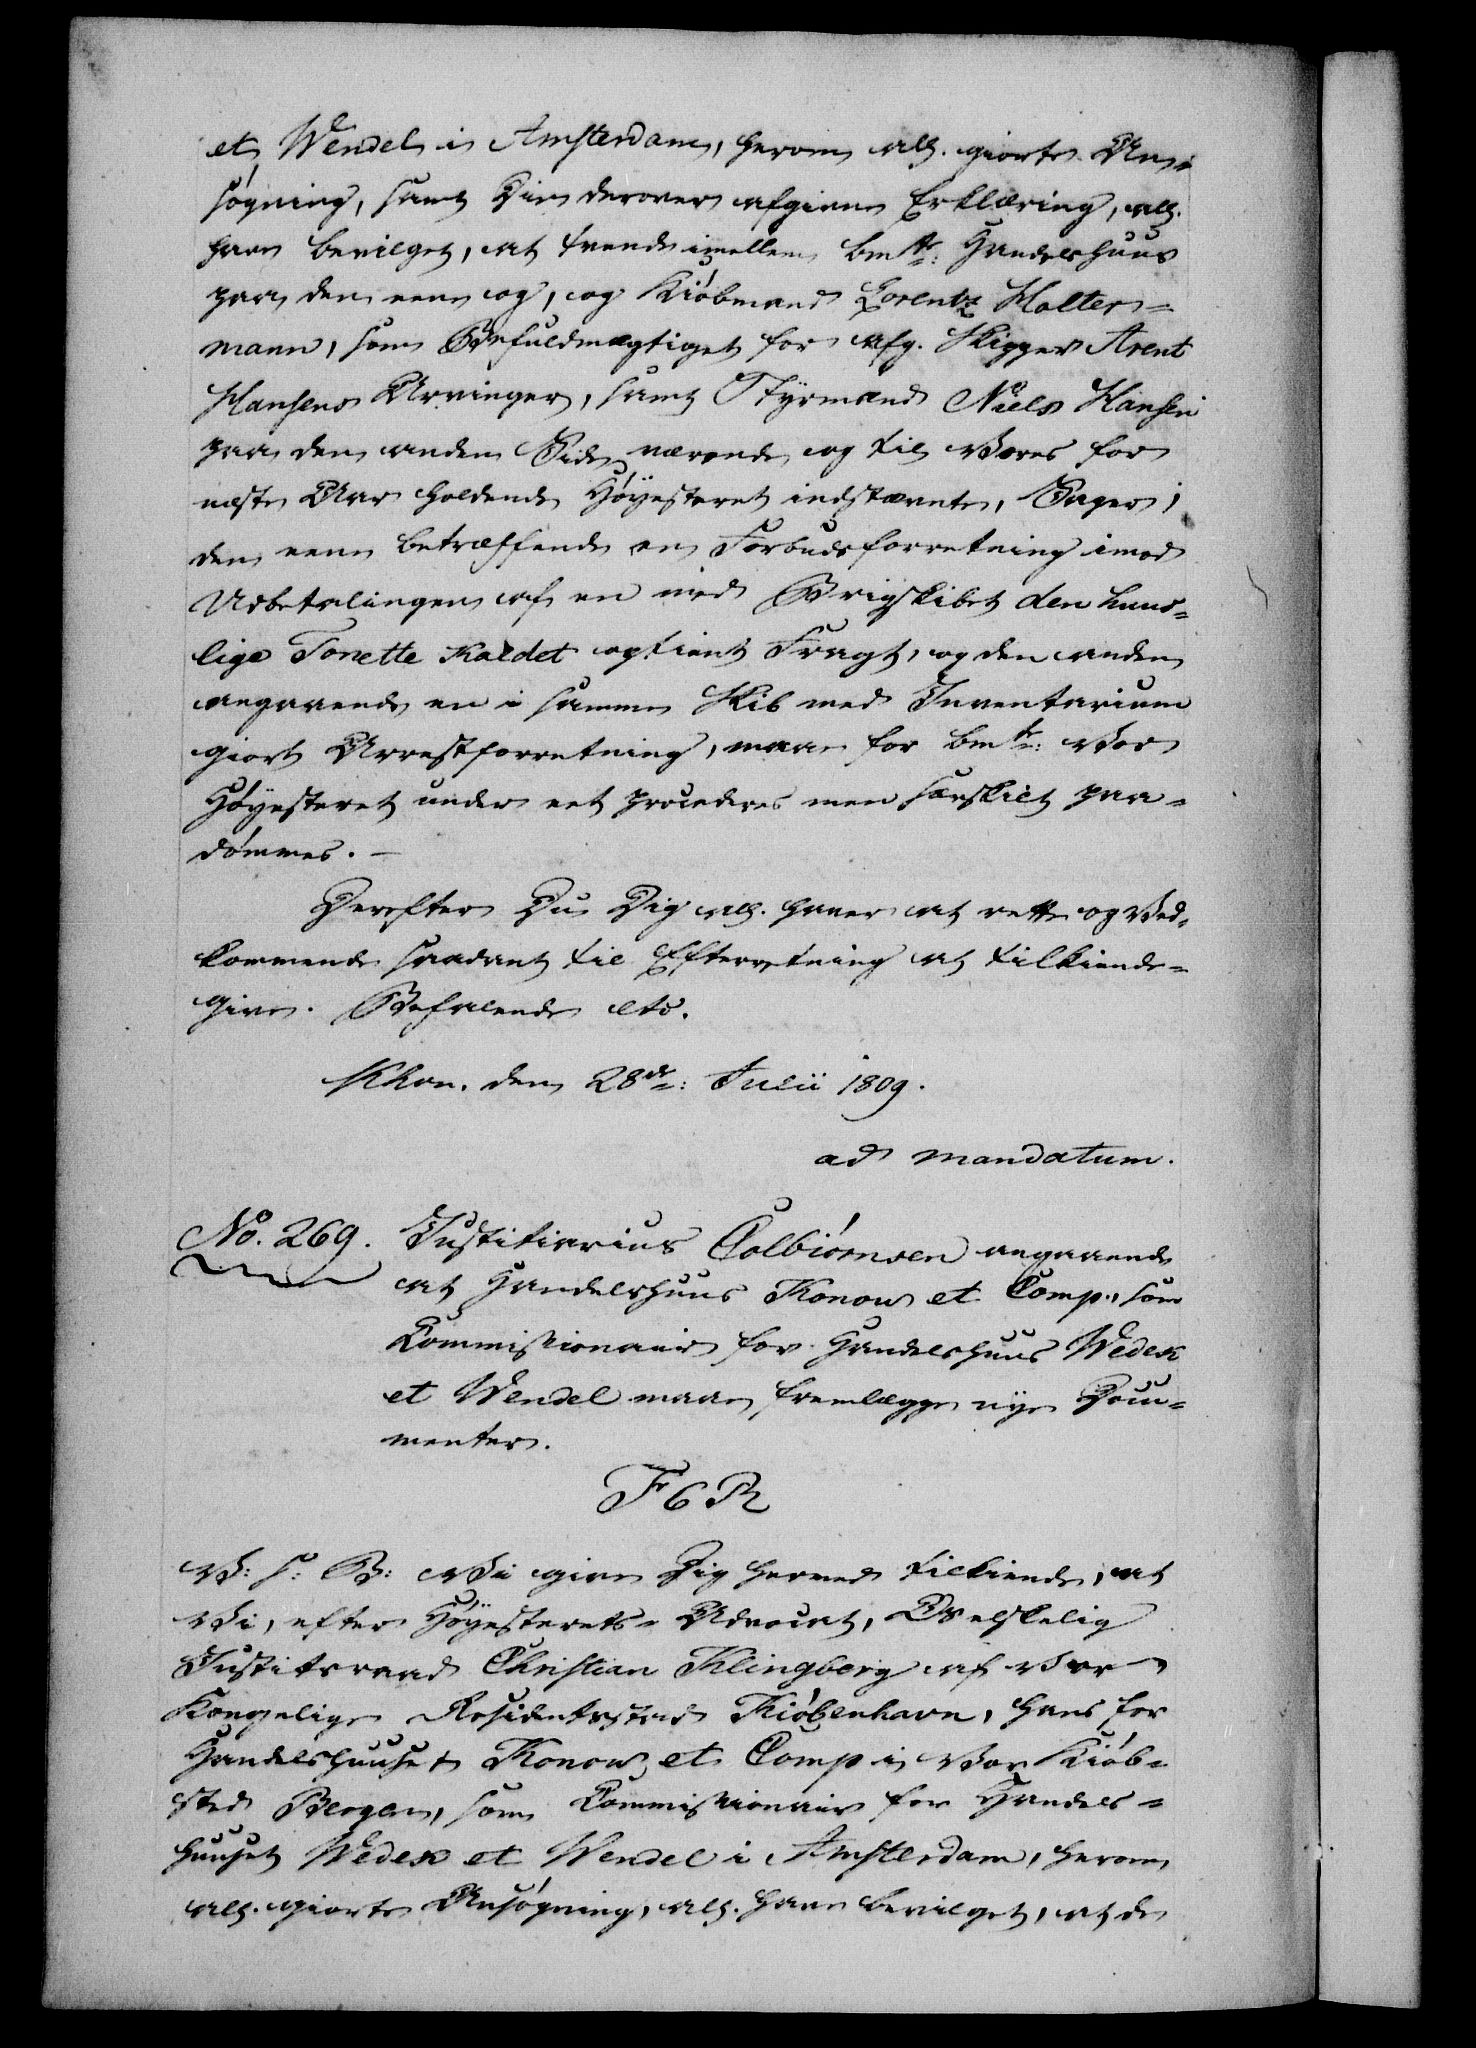 et Wendel i Amsterdam, herom all. giorte An-
søgning, samt Din derover afgivne Erklæring, all.
have bevilget, at tvende imellem bmte: Handelshuus
paa den eene og, og Kiøbmand Lorentz Holter-
mann, som Befuldmægtiget for afg. Skipper Arent
Hansens Arvinger, samt Styrmand Niels Hansen
paa den anden Side værende og til Vores for
næste Aar holdende Høyesteret indstævnte, Sager,
den eene betræffende en Forbudsforretning imod
Udbetalingen af en med Brigskibet den huus-
lige Tonette kaldet optient Fragt, og den anden
angaaende en i samme Skib med Inventarium
giort Arrestforretning, maae for bmte: Vor
Høyesteret under eet procederes men særskilt paa-
dømmes. -
Derefter Du Dig all. haver at rette og Ved-
kommende saadant til Efterretning at tilkiende-
give. Befalende etc.
Khvn. den 28de: Julii 1809.
ad mandatum.
No. 269. Justitiarius Colbiørnsen angaaende
at Handelshuus Konow et Comp., som
Commissionair for Handelshuus Wedek
et Wendel maae fremlægge nye Docu-
menter.
F6R
V: S: B: Vi give Dig hermed tilkiende, at
Vi, efter Høyesterets-Advocat, Os elskelig
Justitsraad Christian Klingberg af Vor
Kongelige Residentsstad Kiøbenhavn, hans for
Handelshuuset Konow et Comp i Vor Kiøb-
sted Bergen, som Commissionair for Handels-
huuset Wedek et Wendel i Amsterdam, herom
all. giorte Ansøgning, all. have bevilget, at de